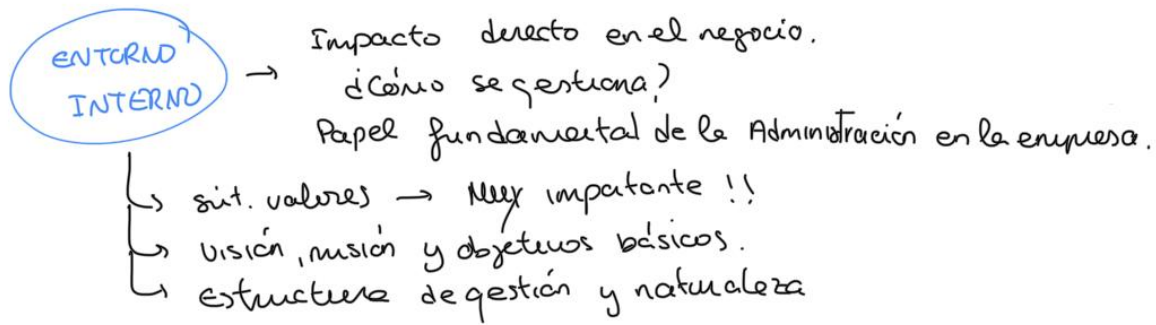 ENTORNO
INTERNO
→ Impacto directo en el negocio.
¿Cómo se gestiona?
Papel fundamental de la Administración en la empresa.
↳ sist. valores → Muy importante !!
↳ visión, misión y objetivos básicos.
↳ Estructura de gestión y naturaleza